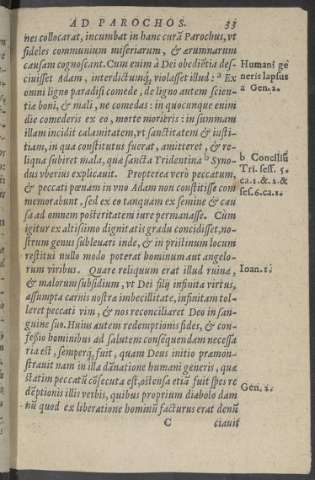 AD PAROCHOS. 33
nes collocarat, incumbat in hanc curā Parochus, vt
fideles communium miseriarum, & ærumnarum
causam cognoscant. Cum enim à Dei obediētia des-
ciuisset Adam, interdictumq́; violasset illud: a Ex
omni ligno paradisi comede, de ligno autem scien-
tia boni, & mali, ne comedas: in quocunque enim
die comederis ex eo, morte morieris: in summam
illam incidit calamitatem, vt sanctitatem & iusti-
tiam, in qua constitutus fuerat, amitteret, & re-
liqua subiret mala, quæ sancta Tridentina b Syno-
dus vberius explicauit. Propterea verò peccatum,
& peccati pœnam in vno Adam non constitisse com
memorabunt, sed ex eo tanquam ex semine & cau
sa ad omnem posteritatem iure permanasse. Cum
igitur ex altissimo dignitatis gradu concidisset, no-
strum genus subleuari inde, & in pristinum locum
restitui nullo modo poterat hominum aut angelo-
rum viribus. Quare reliquum erat illud ruinæ,
& malorum subsidium, vt Dei filij infinita virtus,
assumpta carnis nostræ imbecillitate, infinitam tol-
leret peccati vim, & nos reconciliaret Deo in san-
guine suo. Huius autem redemptionis fides, & con-
fessio hominibus ad salutem consequendam necessa
ria est, semperq́; fuit, quam Deus initio præmon-
strauit nam in illa dānatione humani generis, quæ
statim peccatū cōsecuta est, ostensa etiā fuit spes re
dēptionis illis verbis, quibus proprium diabolo dam
nū quod ex liberatione hominū facturus erat denū
C ciauit
Humani ge
neris lapsus
a Gen. 2.
b Conciliū
Tri. sess. 5.
ca. 1. & 2. &
ses. 6. ca. 1.
Ioan. 1.
Gen. 2.